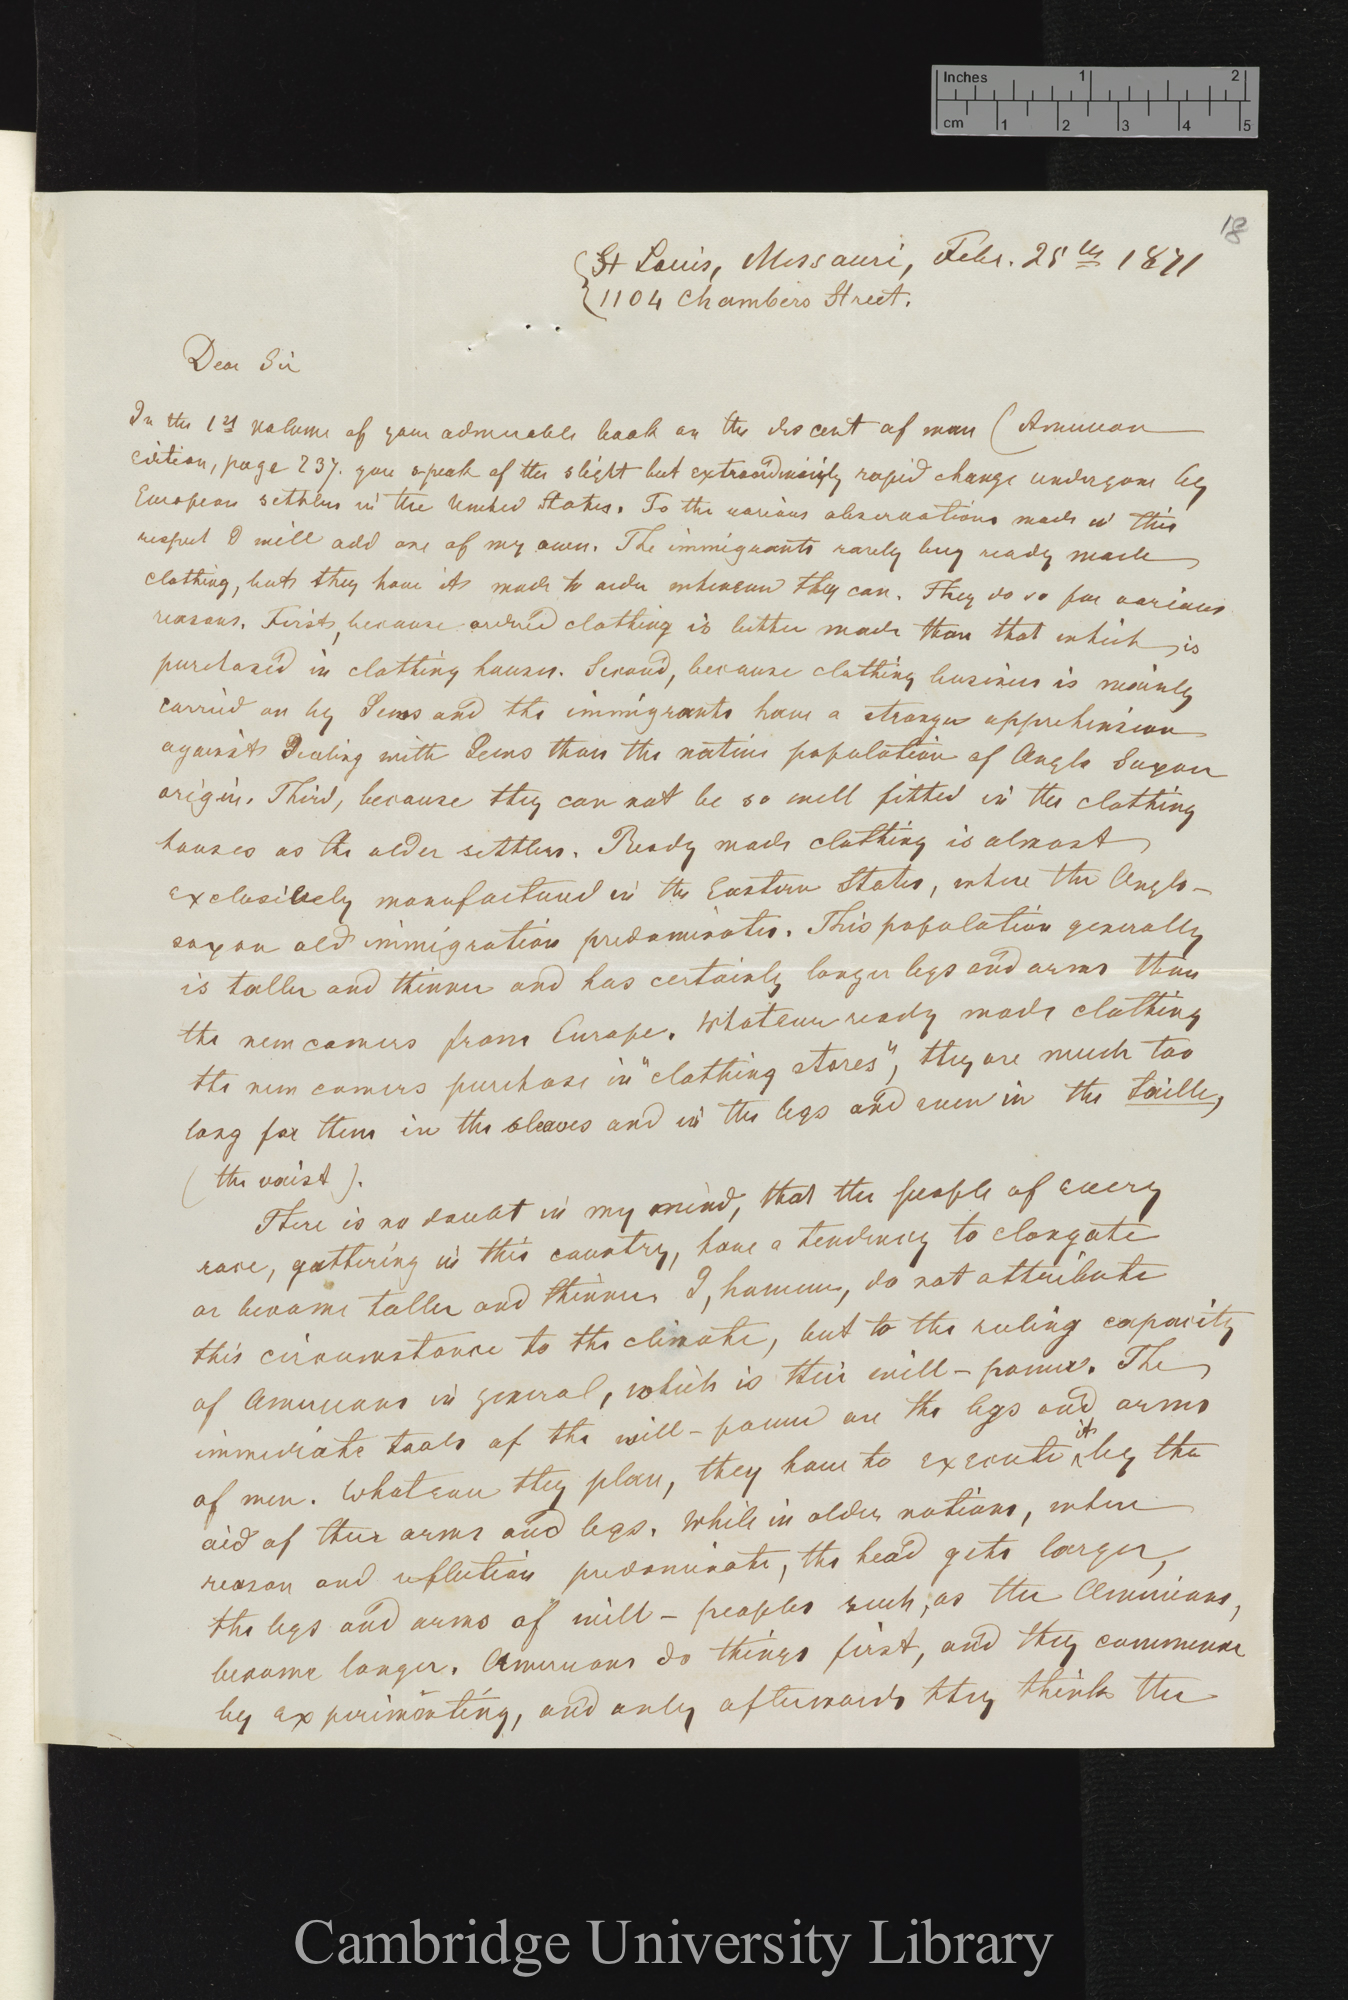 Inches 1 2
cm 1 2 3 4 5
18
St Louis, Missouri, Febr. 25th 1871
1104 Chambers Street.
Dear Sir
In the 1st volume of your admirable book on the descent of man (American
edition, page 237. you speak of the slight but extraordinarily rapid change undergone by
European settlers in the United States. To the various observations made in this
respect I will add one of my own. The immigrants rarely buy ready made
clothing, but they have it made to order whenever they can. They do so for various
reasons. First, because ordered clothing is better made than that which is
purchased in clothing houses. Second, because clothing business is mainly
carried on by Jews and the immigrants have a stronger apprehension
against dealing with Jews than the native population of Anglo Saxon
origin. Third, because they can not be so well fitted in the clothing
houses as the older settlers. Ready made clothing is almost
exclusively manufactured in the Eastern States, where the Anglo-
saxon old immigration predominates. This population generally
is taller and thinner and has certainly longer legs and arms than
the new comers from Europe. Whatever ready made clothing
the new comers purchase in "clothing stores", they are much too
long for them in the sleaves and in the legs and even in the taille,
(the waist).
There is no doubt in my mind, that the people of every
race, gathering in this country, have a tendency to elongate
or become taller and thinner. I, however, do not attribute
this circumstance to the climate, but to the ruling capacity
of Americans in general, which is their will-power. The
immediate tools of the will-power are the legs and arms
of men. Whatever they plan, they have to execute it by the
aid of their arms and legs. While in older nations, where
reason and reflection predominate, the head gets larger,
the legs and arms of will-peoples such, as the Americans,
become longer. Americans do things first, and they commence
by experimenting, and only afterwards they think the
Cambridge University Library